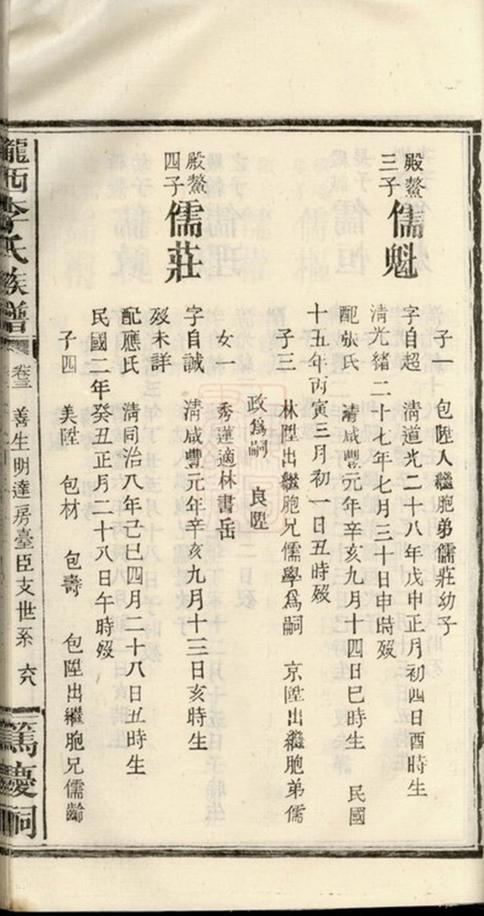 子一　包陞人繼胞弟儒莊幼子
殿鰲三子　儒魁　字自超　清道光二十八年戊申正月初四日酉時生
清光緒二十七年七月三十日申時歿
配張氏　清咸豐元年辛亥九月十四日巳時生　民國
十五年丙寅三月初一日丑時歿
子三　林陞出繼胞兄儒學爲嗣　京陞出繼胞弟儒
政爲嗣　良陞
女一　秀蓮適林書岳
殿鰲四子　儒莊　字自誠　清咸豐元年辛亥九月十三日亥時生
歿未詳
配應氏　清同治八年己巳四月二十八日丑時生
民國二年癸丑正月二十八日午時歿
子四　美陞　包材　包壽　包陞出繼胞兄儒齡
隴西李氏族譜　卷三　善生明達房臺臣支世系　六　篤慶祠